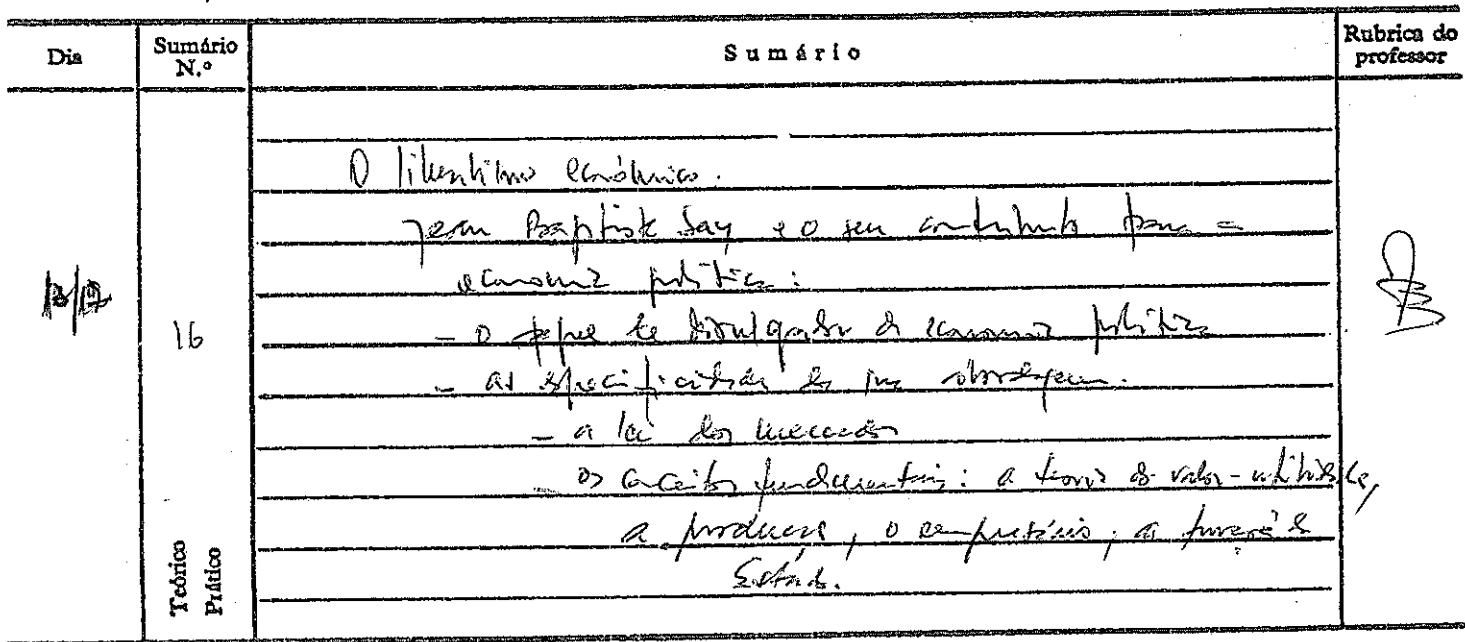 Dia
Sumário N.º
Sumário
Rubrica do professor
16
Teórico
Prático
O liberalismo económico.
Jean Baptiste Say e o seu contributo para a
economia política:
- o papel de divulgador da economia política
- as especificidades da sua abordagem.
- a lei dos mercados
os conceitos fundamentais: a teoria do valor-utilidade,
a produção, o empresário, a função do
Estado.